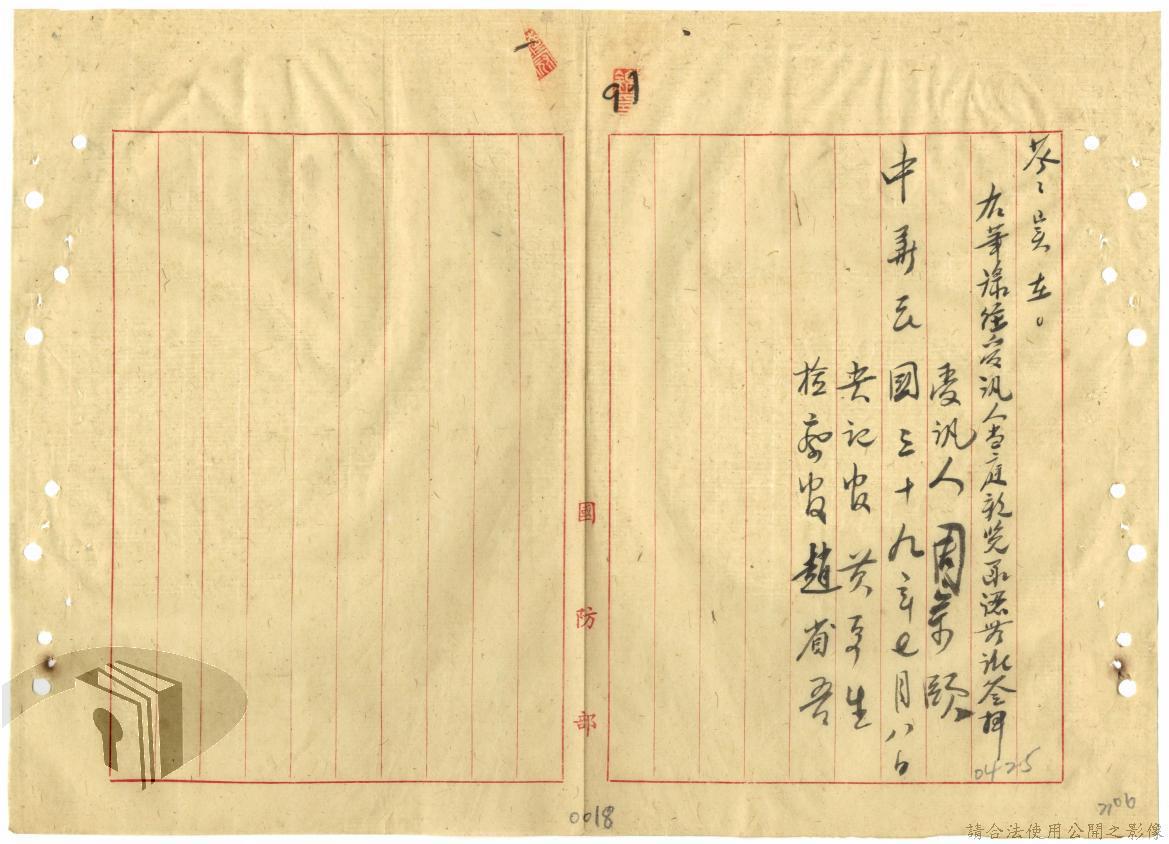 答：在。
右筆錄經受訊人當庭親覽承認無訛簽押
受訊人 周
中華民國三十九年七月八日
書記官 黃生
檢察官 趙省吾
國防部
0425
0018
請合法使用公開之影像